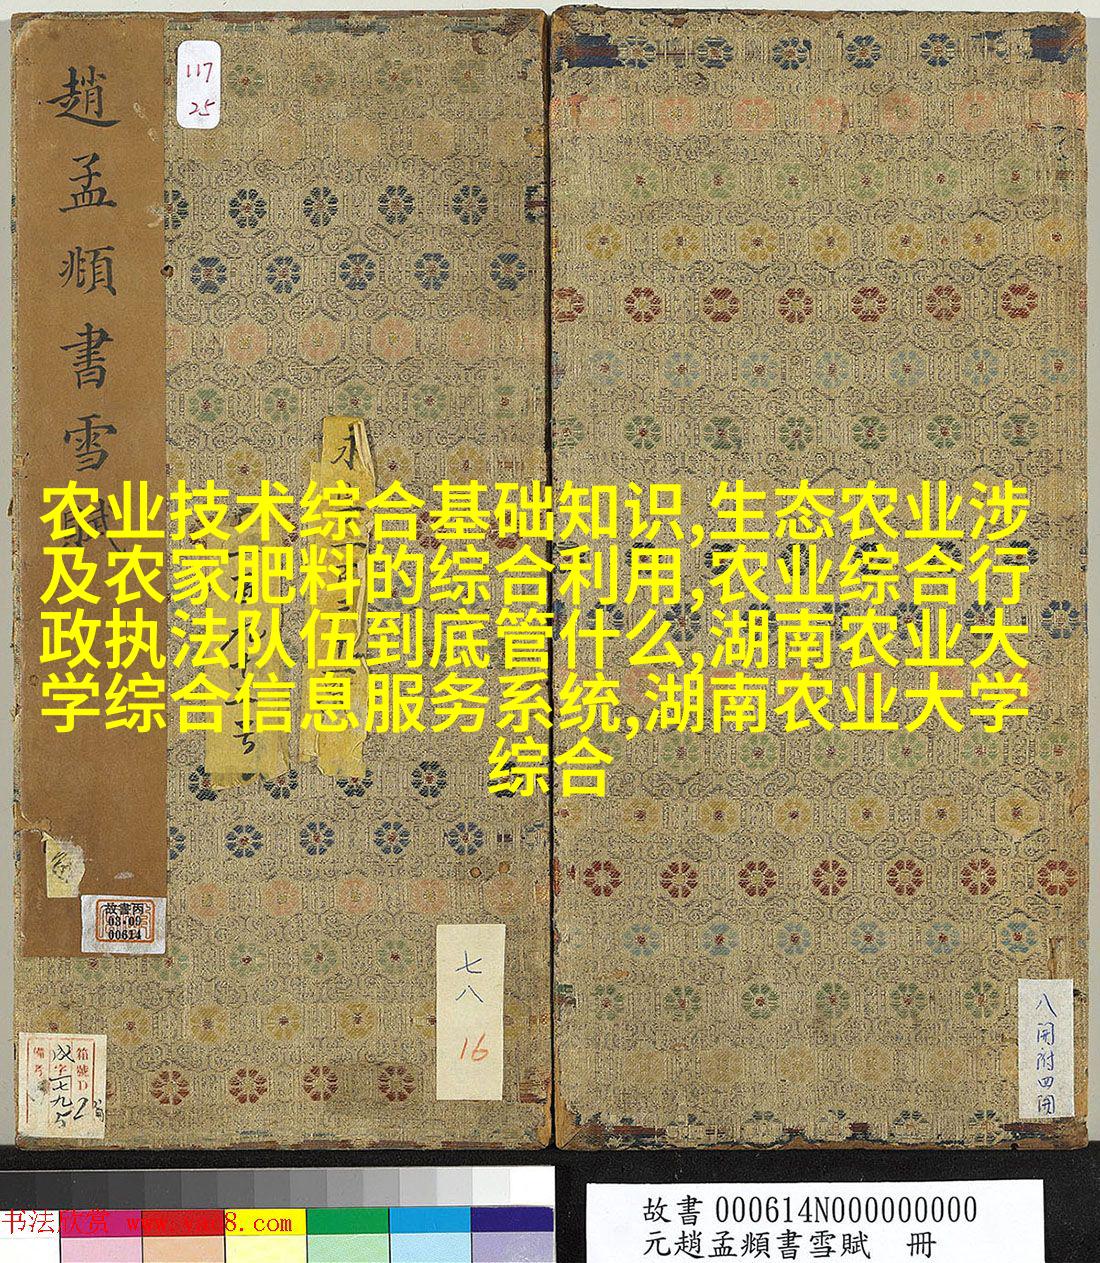 趙孟頫書雪賦
117
25
永
农业技术综合基础知识,生态农业涉
及农家肥料的综合利用,农业综合行
政执法队伍到底管什么,湖南农业大
学综合信息服务系统,湖南农业大学
综合
故書丙
08-09
00614
七八
16
箱號D
備考
八開附四開
書法欣賞 www.yac8.com
故書000614N000000000
元趙孟頫書雪賦 冊